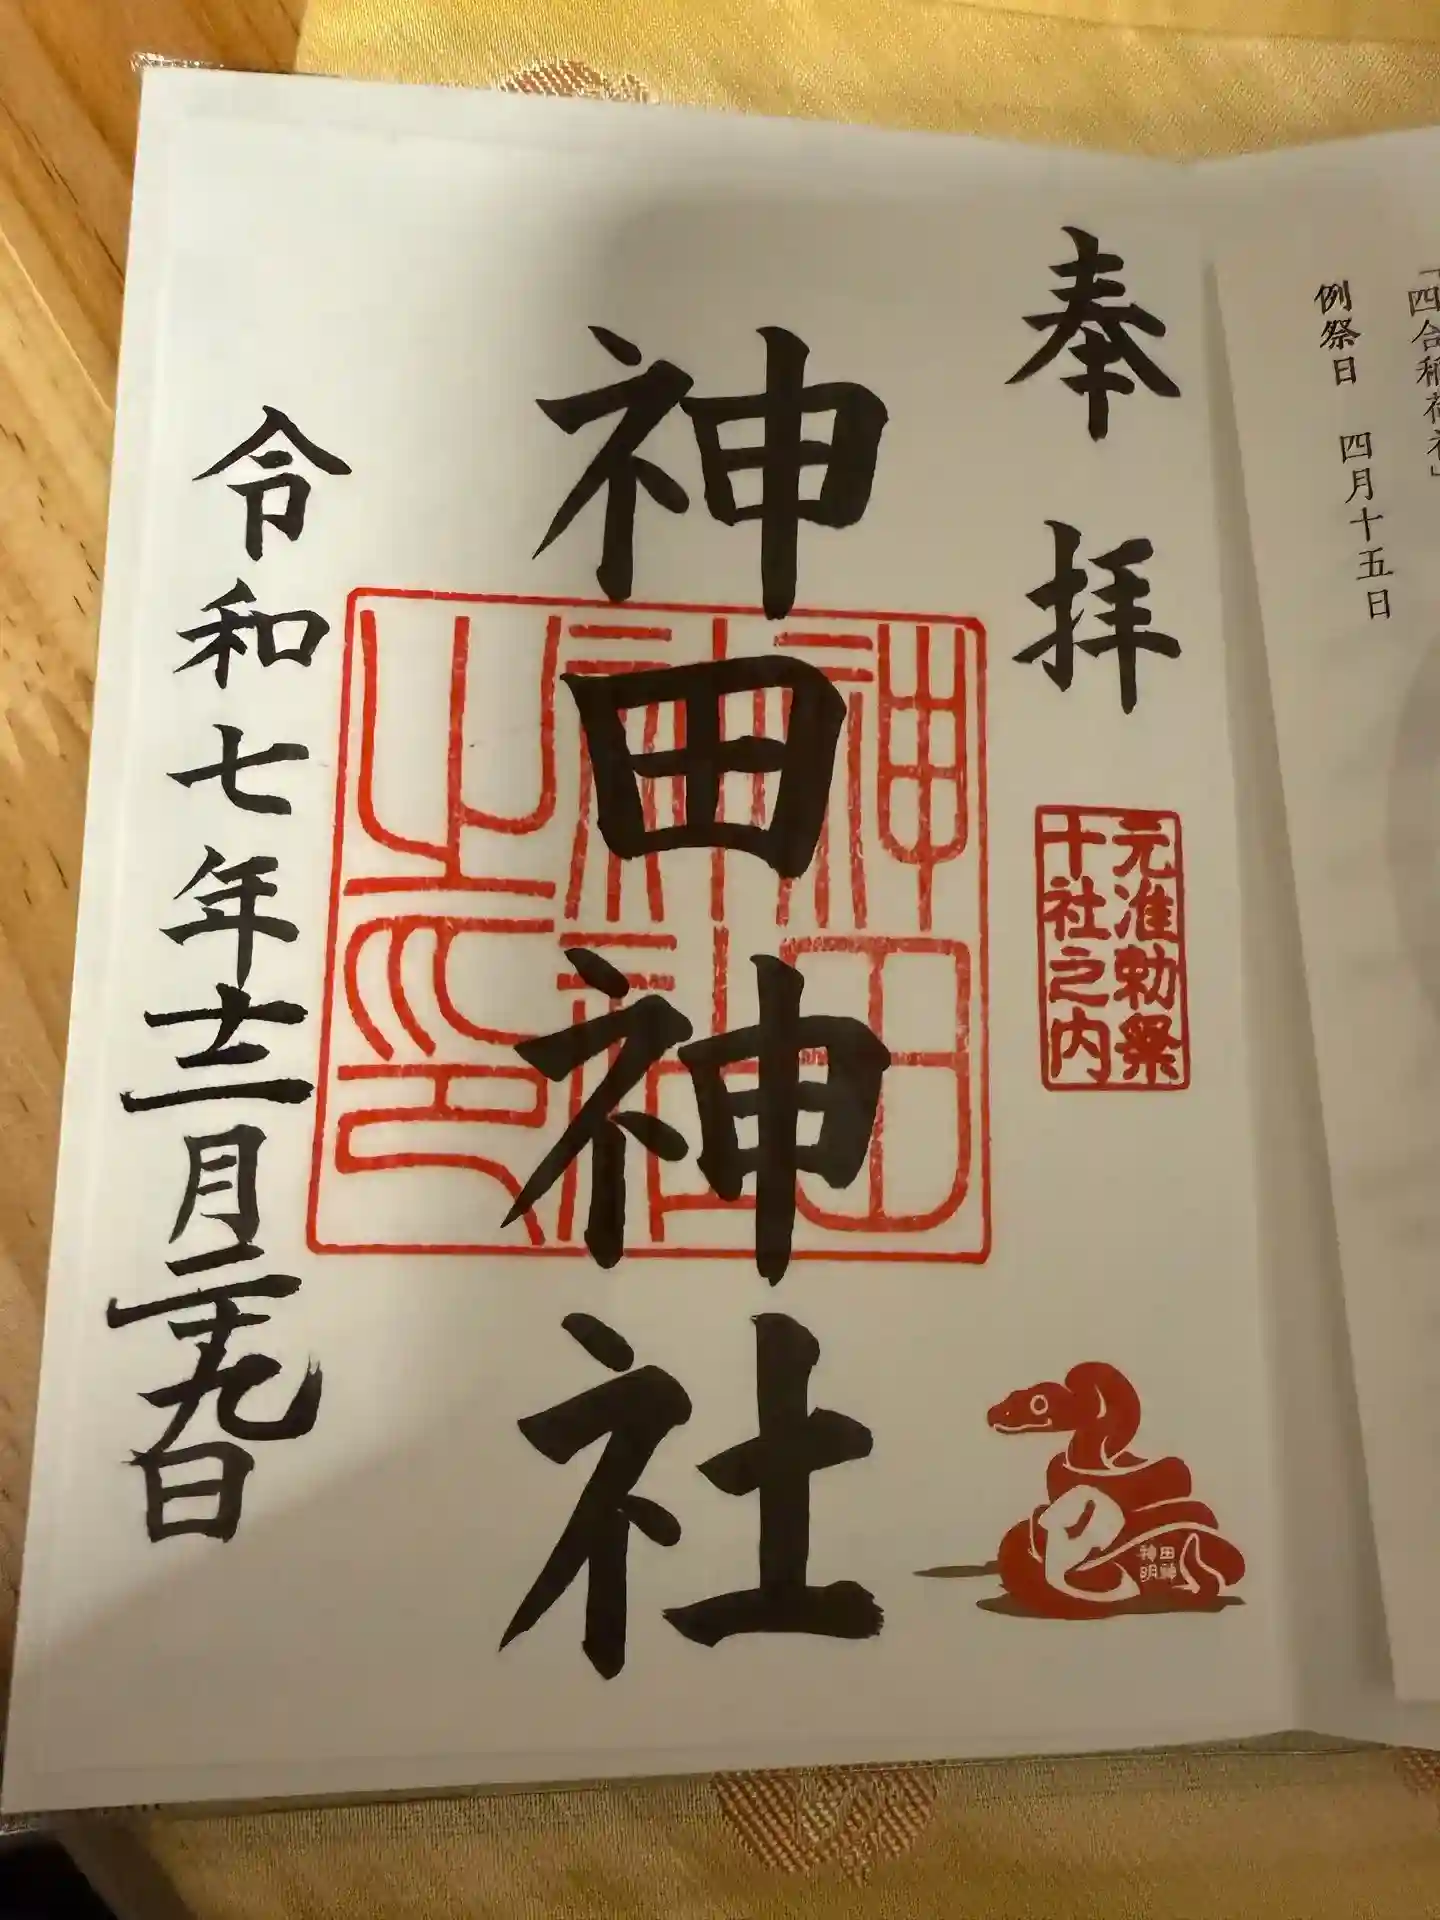 「四合稲荷社」
例祭日 四月十五日
奉拝
元准勅祭
十社之内
巳
神田神明
神田神社
神田
神社
之印
令和七年十二月二十九日